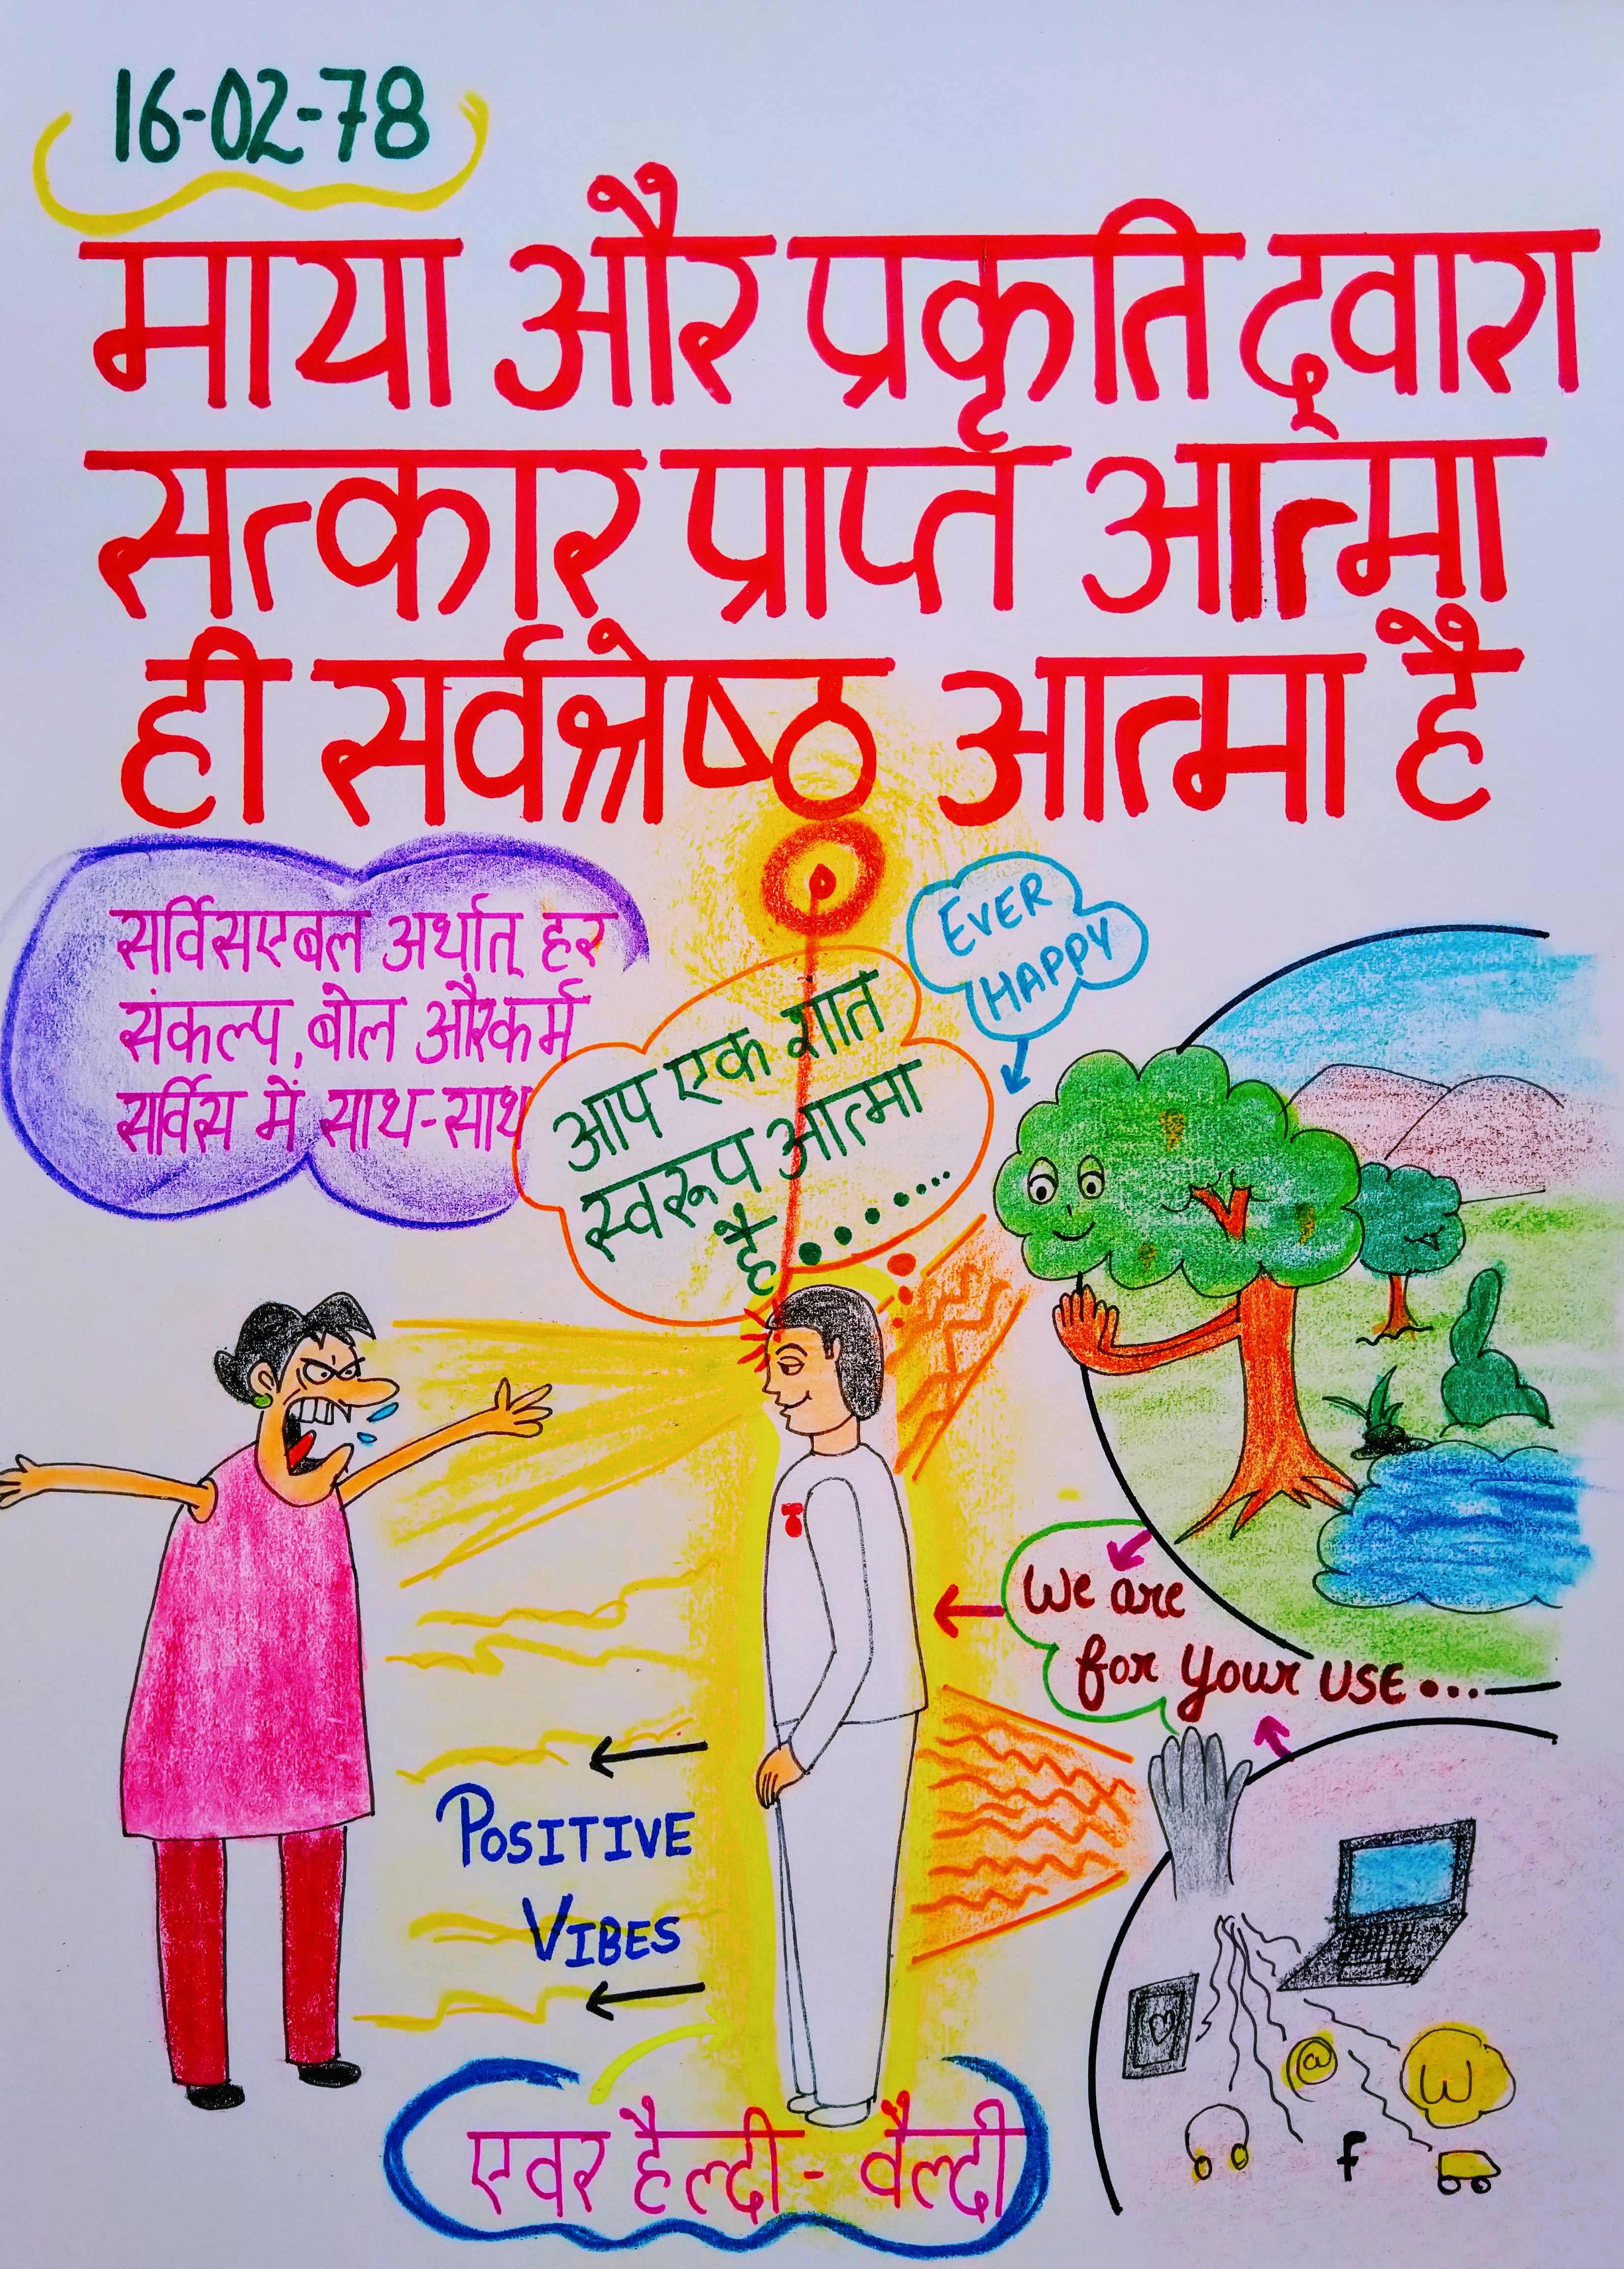 16-02-78
माया और प्रकृति द्वारा
सत्कार प्राप्त आत्मा
ही सर्वश्रेष्ठ आत्मा है
सर्विसएबल अर्थात् हर
संकल्प, बोल और कर्म
सर्विस में साथ-साथ
आप एक शांत
स्वरूप आत्मा
है..........
EVER
HAPPY
We are
for your USE....
POSITIVE
VIBES
@
W
f
एवर हैल्दी - वैल्दी